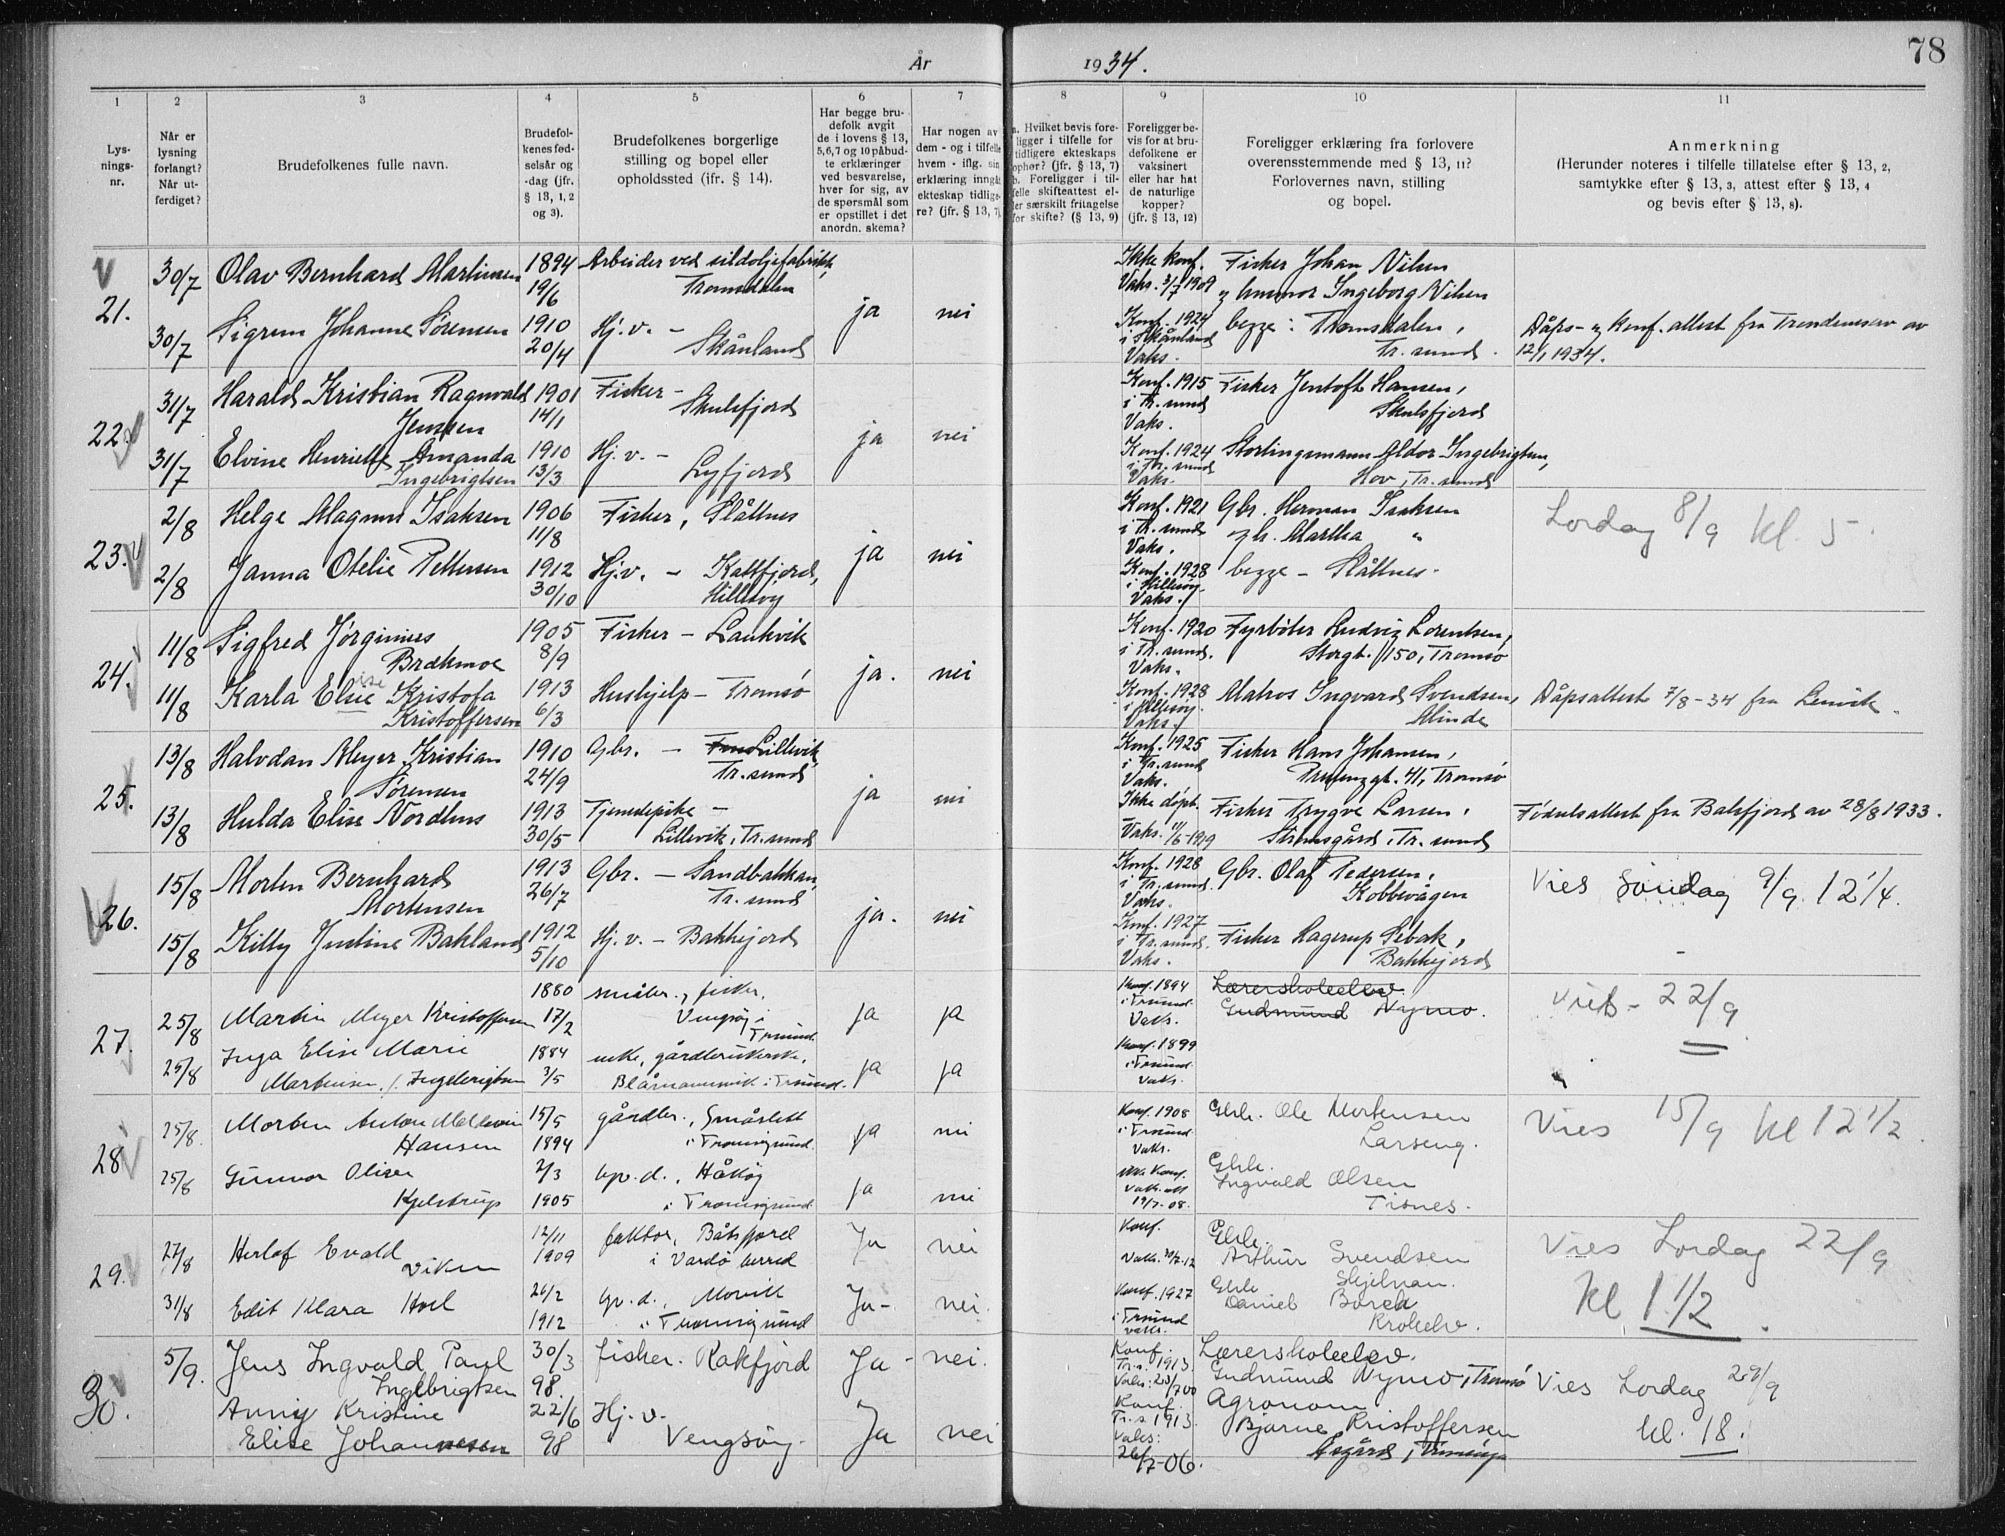 År 1934.
78
1 2 3 4 5 6 7 8 9 10 11
Lys-
nings-
nr.
Når er
lysning
forlangt?
Når ut-
ferdiget?
Brudefolkenes fulle navn.
Brudefol-
kenes fød-
selsår og
-dag (jfr.
§ 13, 1, 2
og 3).
Brudefolkenes borgerlige
stilling og bopel eller
opholdssted (jfr. § 14).
Har begge bru-
defolk avgit
de i lovens § 13,
5, 6, 7 og 10 påbud-
te erklæringer
ved besvarelse,
hver for sig, av
de spørsmål som
er opstillet i det
anordn. skema?
Har nogen av
dem - og i tilfelle
hvem - iflg. sin
erklæring inngåt
ekteskap tidlige-
re? (jfr. § 13, 7)
a. Hvilket bevis fore-
ligger i tilfelle for
tidligere ekteskaps
ophør? (jfr. § 13, 7)
b. Foreligger i til-
felle skifteattest el-
ler særskilt fritagelse
for skifte? (§ 13, 9)
Foreligger be-
vis for at bru-
defolkene er
vaksinert
eller har hat
de naturlige
kopper?
(jfr. § 13, 12)
Foreligger erklæring fra forlovere
overensstemmende med § 13, 11?
Forlovernes navn, stilling
og bopel.
Anmerkning
(Herunder noteres i tilfelle tillatelse efter § 13, 2,
samtykke efter § 13, 3, attest efter § 13, 4
og bevis efter § 13, 8).
21.
30/7 Olav Bernhard Martinsen 1894 19/6 Arbeider ved sildoljefabrikk, Tromsdalen
Ikke konf. Vaks. 3/7 1909 Fisker Johan Nilsen
Ingeborg Nilsen
30/7 Sigrun Johanne Sørensen 1910 20/4 Hj.v. - Skånland ja nei
Konf. 1924 i Skånland Vaks. begge: Tromsdalen, Tr.sund.
Dåps- og konf. attest fra Trondenes av
12/1 1934.
22.
31/7 Harald Kristian Ragnvald Jensen 1901 14/1 Fisker - Skulsfjord
Konf. 1915 i Tr.sund Vaks. Fisker Jentoft Hansen, Skulsfjord
31/7 Elvine Henriette Amanda Ingebrigtsen 1910 13/3 Hj.v. - Lyfjord ja nei
Konf. 1924 i Tr.sund Vaks. Stortingsmann Aldor Ingebrigtsen, Hov, Tr.sund
23.
2/8 Helge Magnus Isaksen 1906 11/8 Fisker, Slåttnes
Konf. 1921 i Tr.sund Vaks. Gbr. Herman Isaksen
og h. Martha "
2/8 Janna Otelie Pettersen 1912 30/10 Hj.v. - Kattfjord, Hillesøy ja nei
Konf. 1928 i Hillesøy Vaks. begge - Slåttnes.
Lørdag 8/9 kl. 5.
24.
11/8 Sigfred Jørginius Brækmoe 1905 8/9 Fisker - Laukvik
Konf. 1920 i Tr.sund. Vaks. Fyrbøter Ludvig Lorentsen, Storgt. 150, Tromsø
11/8 Karla Elise Kristofa Kristoffersen 1913 6/3 Hushjelp - Tromsø ja. nei
Konf. 1928 i Hillesøy. Vaks. Matros Ingvard Svendsen, Minde
Dåpsattest 7/8-34 fra Lenvik.
25.
13/8 Halvdan Meyer Kristian Sørensen 1910 24/9 Gbr. - Lillevik, Tr.sund
Konf. 1925 i Tr.sund Vaks. Fisker Hans Johansen, 41, Tromsø
13/8 Hulda Elise Nordhus 1913 30/5 Tjenestepike - Lillevik, Tr.sund ja nei
Ikke døpt. Vaks. Fisker Trygve Larsen, Strømsgård, Tr.sund
Fødselsattest fra Balsfjord av 28/8 1933.
26.
15/8 Morten Bernhard Mortensen 1913 26/7 Gbr. - Sandbakken, Tr.sund
Konf. 1928 i Tr.sund. Vaks. Gbr. Olaf Pedersen, Kobbevågen
15/8 Kitty Justine Bakland 1912 5/10 Hj.v. - Bakkejord ja. nei
Konf. 1927 i Tr.sund. Vaks. Fisker Lagerup Sebak, Bakkejord
Vies søndag 9/9 12 1/4.
27.
25/8 Martin Meyer Kristoffersen 1880 17/2 småbr. og fisker, Vengsøy i Trsund. ja ja
Konf. 1894 i Trsund. Vaks. Lærerskoleelev Gudmund Nymo.
25/8 Inga Elise Marie Martinsen, f. Ingebrigtsen 1884 3/5 enke, gårdbrukerske, Blåmannsvik i Trsund. ja ja
Konf. 1899 i Trsund Vaks.
Vies - 22/9
28
25/8. Morten Anton Hansen 15/5 1894 gårdbr., Småslett i Tromsøysund ja nei
Konf. 1908 i Trsund. Vaks. Gbr. Ole Mortensen Larseng.
25/8 Gunvor Olise Kjelstrup 2/3 1905 hv.d., Håkøy i Tromsøysund ja nei
Ikke konf. Vaks. att 19/7-08. Gbr. Ingvald Olsen Tisnes.
Vies 15/9 kl 12 1/2.
29.
27/8 Herlof Evald Viken 12/11 1909 faktor, Båtsfjord i Vardø herred Ja nei
Konf. Vaks. Gbr. Arthur Svendsen Skjelnan.
31/8 Edit Klara Hoel 26/2 1912 hv.d., Movik i Tromsøysund Ja- nei.
Konf. 1927 i Trsund vaks. Gbr Daniel Borch Krokelv.
Vies Lørdag 22/9
kl 1 1/2.
30.
5/9. Jens Ingvald Paul Ingebrigtsen 30/3 98. fisker. Rakfjord Ja - nei.
Konf. Tr.s. 1913. Lærerskoleelev. Gudmund Nymo, Tromsø
Anny Kristine Elise Johannesen 22/6 98 Hj.v. Vengsøy. Ja nei
Konf. Tr.s 1913. Vaks: 26/7-06. Agronom Bjarne Kristoffersen Åsgård, Tromsøya
Vies Lørdag 29/9
kl. 18.